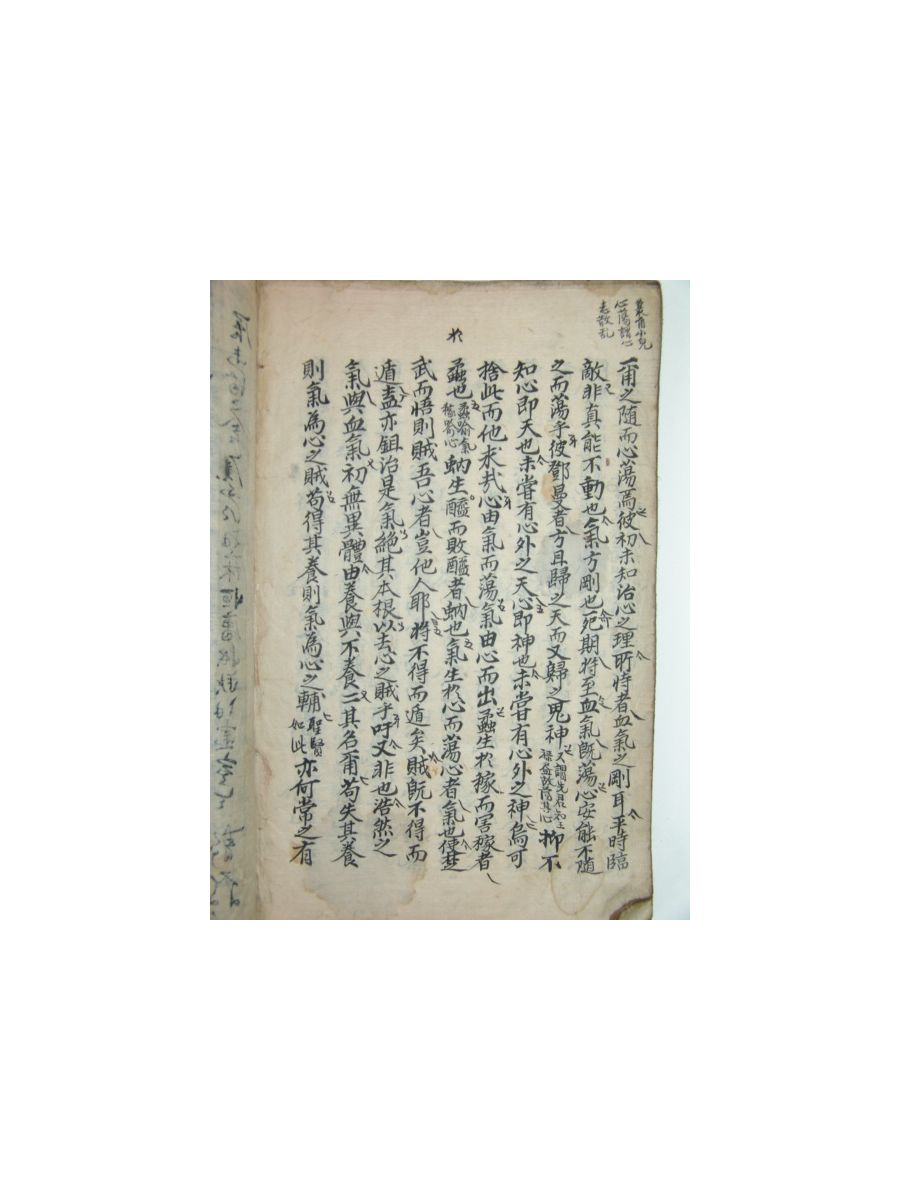 心蕩謂心
志散乱
爾之隨而心蕩焉彼初未知治心之理所恃者血氣之剛耳平時臨
敵非真能不動也氣方剛也死期將至血氣旣蕩心安能不隨
之而蕩乎彼鄧曼者方且歸之天而又歸之鬼神
又謂先君
抑不
知心即天也未嘗有心外之天心即神也未嘗有心外之神烏可
捨此而他求哉心由氣而蕩氣由心而出蟊生於稼而害稼者
於
蟊也
蟊喩氣
稼喩心
蚋生醯而敗醯者蚋也氣生於心而蕩心者氣也使楚
武而悟則賊吾心者豈他人耶將不得而遁矣賊旣不得而
遁盍亦鉏治是氣絶其本根以去心之賊乎吁又非也浩然之
氣與血氣初無異體由養與不養二其名爾苟失其養
則氣為心之賊苟得其養則氣為心之輔
聖賢
如此
亦何常之有